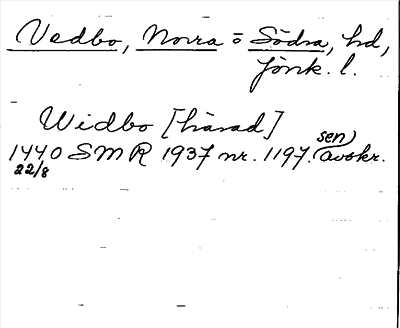 Vedbo, Norra o Södra, hd,
Jönk. l.
Widbo [härad]
1440 SMR 1937 nr. 1197. sen) avskr.
22/8